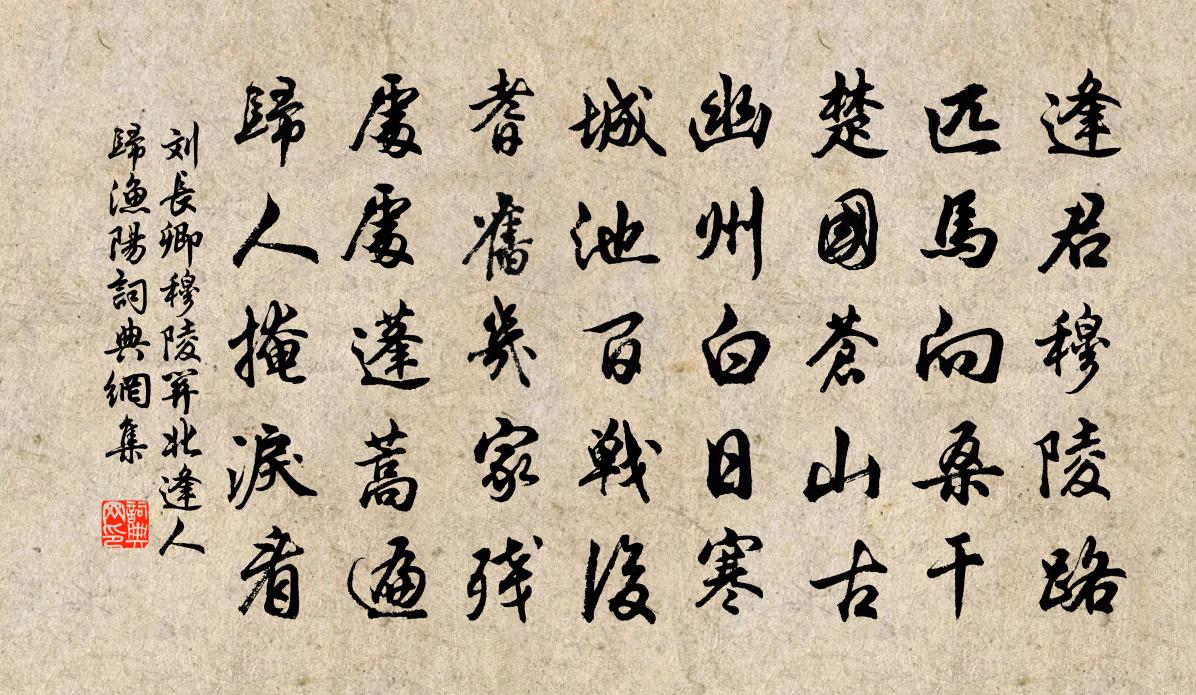 逢君穆陵路
匹馬向桑干
楚國蒼山古
幽州白日寒
城池百戦後
耆舊幾家残
處處蓬蒿遍
歸人掩淚看
刘長卿穆陵關北逢人
歸渔陽詞典網集
詞典网印